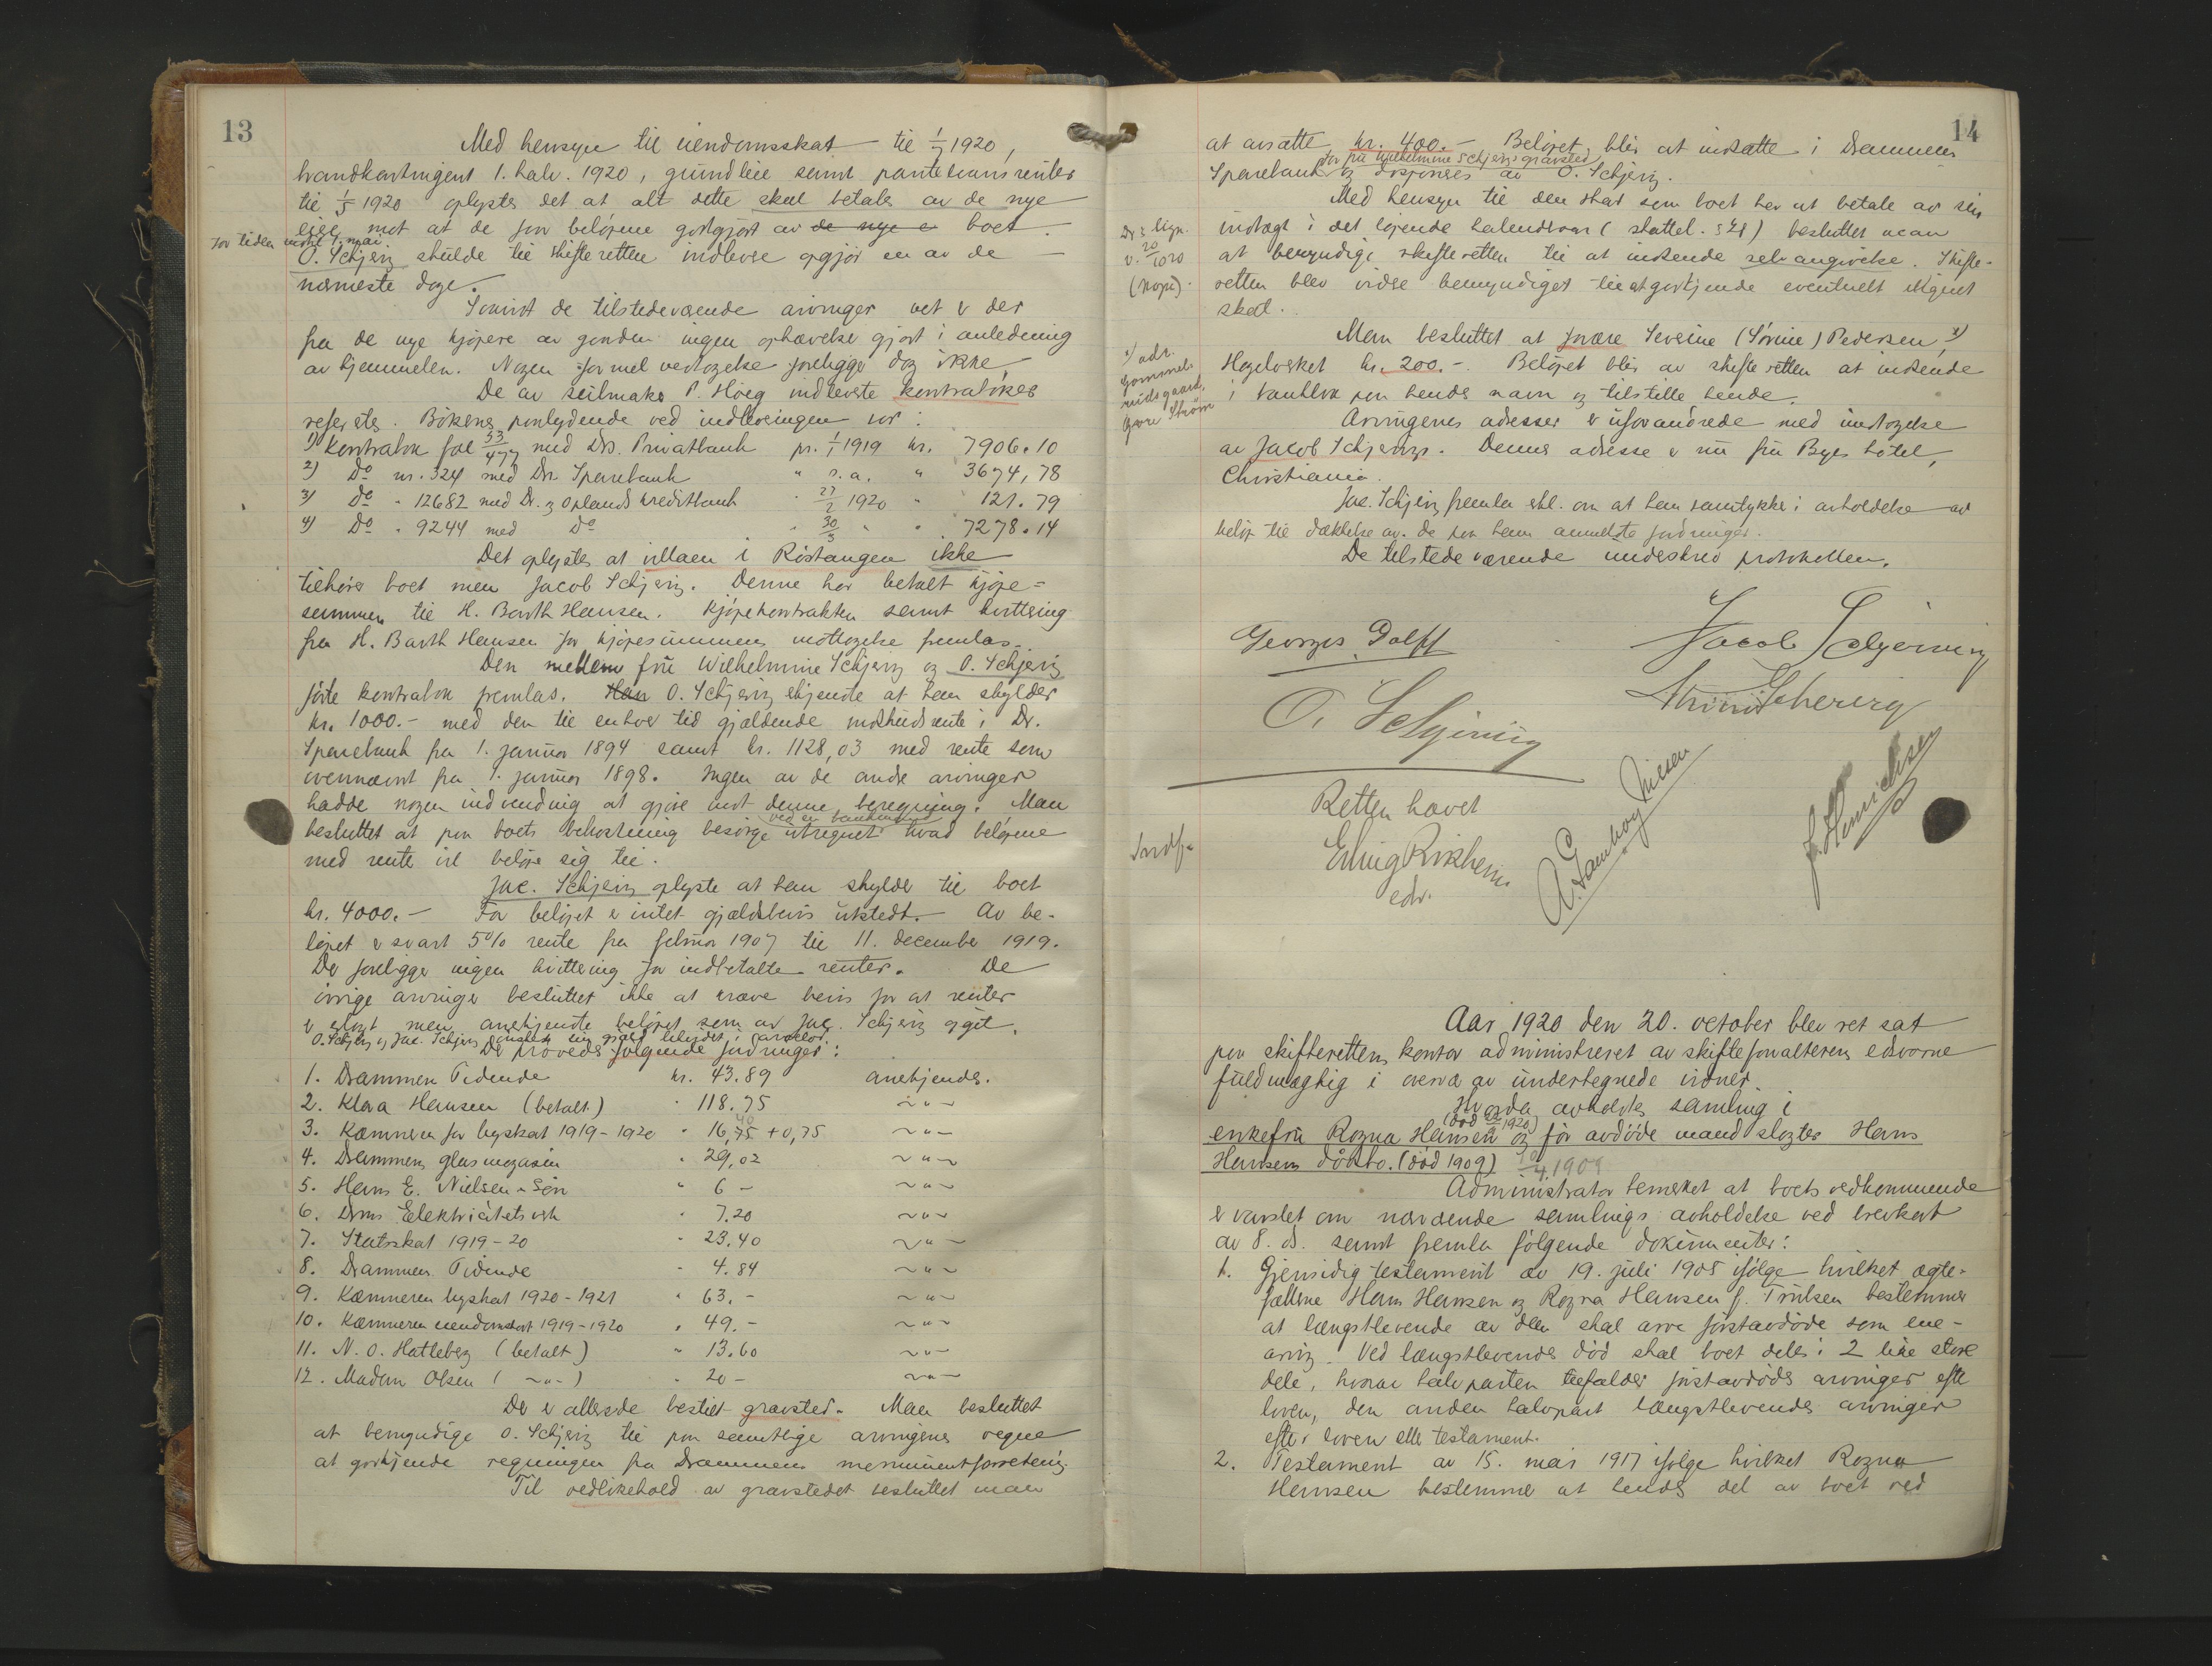 13
Med hensyn til eiendomsskat til 1/7 1920,
brandkontingent 1. halv. 1920, grundleie samt pantelaansrenter
til 1/5 1920 oplystes det at alt dette skal betales av de nye
eiere mot at de faar beløpene godtgjort av de nye e boet
for tiden indtil 1. mai.
O. Schjerig skulde til skifteretten indlevere opgjør en av de
nærmeste dage.
Saavidt de tilstedeværende arvinger vet er der
fra de nye kjøpere av gaarden ingen ophævelse gjort i anledning
av hjemmelen. Nogen formel vedtagelse foreligger dog ikke,
De av seilmaker P. Høeg indleverte kontrabøker
refereres. Bøkenes paalydende ved indleveringen var:
1) Kontrabok fol 53/477 med Drs. Privatbank pr. 1/1 1919 kr. 7906.10
2) Do nr. 324 med Dr. Sparebank " s.a. " 3674,78
3) Do " 12682 med Dr. og Oplands Kreditbank " 27/2 1920 " 121.79
4) Do " 9244 med Do " 30/3 " " 7278.14
Det oplystes at villaen i Röstangen ikke
tilhører boet men Jacob Schjerig. Denne har betalt kjøpe-
summen til H. Barth Hansen. Kjøpekontrakten samt kvittering
fra H. Barth Hansen for kjøpesummens mottagelse fremlaa.
Den mellem fru Wilhelmine Schjerig og O. Schjerig
førte kontrabok fremlaa. Han O. Schjerig erkjendte at han skylder
kr. 1000.- med den til enhver tid gjældende indskudsrente i Dr.
Sparebank fra 1. januar 1894 samt kr. 1128,03 med rente som
ovennævnt fra 1. januar 1898. Ingen av de andre arvinger
hadde nogen indvending at gjøre mot denne beregning. Man
ved en bankmand
besluttet at paa boets bekostning besørge utregnet hvad beløpene
med rente vil beløpe sig til.
Jac. Schjerig oplyste at han skylder til boet
kr. 4000.- For beløpet er intet gjældsbevis utstedt. Av be-
løpet er svart 5% rente fra februar 1907 til 11. december 1919.
Der foreligger ingen kvittering for indbetalte renter. De
øvrige arvinger besluttet ikke at kræve bevis for at renter
er erlagt men anerkjendte beløpet som av Jac. Schjerig opgit.
O. Schjerig og Jac. Schjerig ønsket sin gjæld likvidert i arvelod.
De prøvedes følgende fordringer:
1. Drammen Tidende kr. 43.89 anerkjendes.
2. Klara Hansen (betalt) " 118.75 ~"~
3. Kæmneren for byskat 1919-1920 " 16,75 40 + 0,75 ~"~
4. Drammens glasmagasin " 29,02 ~"~
5. Hans E. Nielsen & Søn " 6 - ~"~
6. Drms Elektricitetsverk " 7.20 ~"~
7. Statsskat 1919-20 " 23.40 ~"~
8. Drammens Tidende " 4.84 ~"~
9. Kæmneren byskat 1920-1921 " 63.- ~"~
10. Kæmneren eiendomsskat 1919-1920 " 49.- ~"~
11. N. O. Hatleberg (betalt) " 13.60 ~"~
12. Madam Olsen ( ~"~ ) " 20 - ~"~
Der er allerede bestilt gravsted. Man besluttet
at bemyndige O. Schjerig til paa samtlige arvingers vegne
at godkjende regningen fra Drammens monumentforretning.
Til vedlikehold av gravstedet besluttet man
14
at avsætte kr. 400.- Beløpet blir at indsætte i Drammens
for fru Wilhelmine Schjerigs gravsted
Sparebank og disponeres av O. Schjerig.
Med hensyn til den skat som boet har at betale av sin
indtægt i det løpende kalenderaar (skattel. § 28) besluttet man
at bemyndige skifteretten til at indsende selvangivelse. Skifte-
retten blev videre bemyndiget til at godkjende eventuelt utlignet
skat.
Drs lign.
v. 20/10 20
(kopi)
Man besluttet at forære Severine (Sörine) Pedersen, x)
Hagelökket kr. 200.- Beløpet blir av skifteretten at indsende
i bankbok paa hendes navn og tilstille hende.
x) adr.
Gammels
rudsgaard,
Øvre Strøm
Arvingenes adresser er uforandrede med undtagelse
av Jacob Schjerigs. Dennes adresse er nu fru Byes hotel,
Christiania.
Jac. Schjerig fremla erkl. om at han samtykker i avholdelse av
beløp til dækkelse av de paa ham anmeldte fordringer.
De tilstedeværende underskrev protokollen.
Georges Dalft
Jacob Schjerig
O. Schjerig
Scherig
Retten hævet
Indf.
Erling Rikheim
edv.
A. Nilsen
J. Henrichsen
Aar 1920 den 20. october blev ret sat
paa skifterettens kontor administreret av skifteforvalterens edsvorne
fuldmægtig i overvær av undertegnede vidner.
Hvorda avholdtes samling i
(död 1920)
enkefru Ragna Hansen og før avdöde mand slagter Hans
Hansens dödsbo. (död 1909) 10/4 1909
Administrator bemerket at boets vedkommende
er varslet om nærværende samlings avholdelse ved brevkort
av 8. ds. samt fremla følgende dokumenter:
1. Gjensidig testament av 19. juli 1905 ifølge hvilket ægte-
fællerne Hans Hansen og Ragna Hansen f. Trulsen bestemmer
at længstlevende av dem skal arve førstavdøde som ene-
arving. Ved længstlevendes död skal boet deles i 2 like store
dele, hvorav halvparten tilfalder førstavdødes arvinger efter
loven, den anden halvpart længstlevendes arvinger
efter loven eller testament.
2. Testament av 15. mai 1917 ifølge hvilket Ragna
Hansen bestemmer at hendes del av boet ved